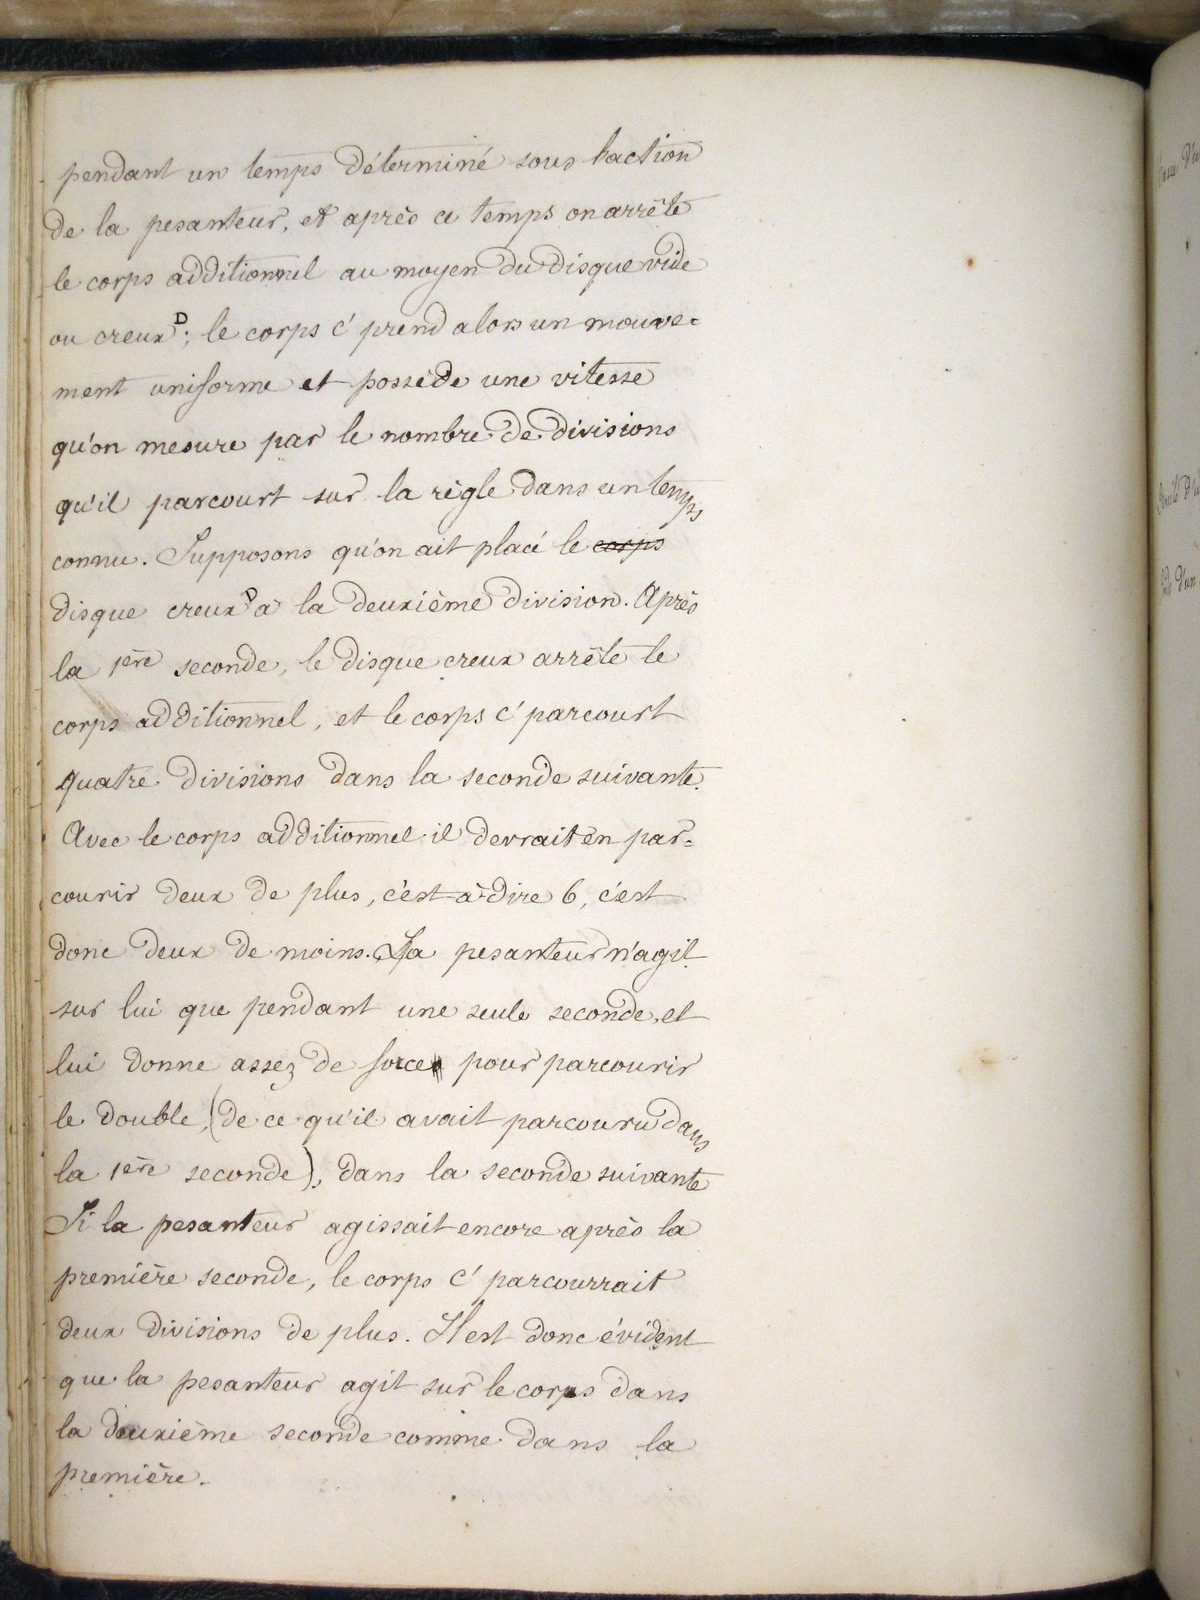 pendant un temps déterminé sous l'action
de la pesanteur, et après ce temps on arrête
le corps additionnel au moyen du disque vide
ou creux D; le corps c' prend alors un mouve=
ment uniforme et possède une vitesse
qu'on mesure par le nombre de divisions
qu'il parcourt sur la règle dans un temps
connu. Supposons qu'on ait placé le corps
disque creux D à la deuxième division. Après
la 1ère seconde, le disque creux arrête le
corps additionnel, et le corps c' parcourt
quatre divisions dans la seconde suivante.
Avec le corps additionnel il devrait en par=
courir deux de plus, c'est-à-dire 6, c'est
donc deux de moins. La pesanteur n'agit
sur lui que pendant une seule seconde, et
lui donne assez de force pour parcourir
le double, (de ce qu'il avait parcouru dans
la 1ère seconde), dans la seconde suivante
Si la pesanteur agissait encore après la
première seconde, le corps c' parcourrait
deux divisions de plus. Il est donc évident
que la pesanteur agit sur le corps dans
la deuxième seconde comme dans la
première.